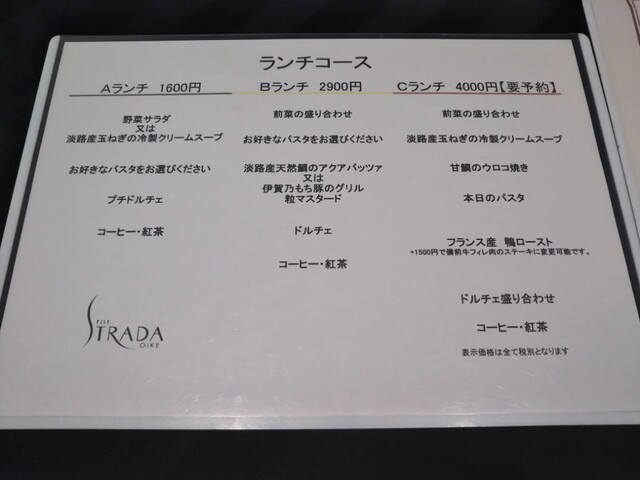 ランチコース
Aランチ 1600円
野菜サラダ
又は
淡路産玉ねぎの冷製クリームスープ
お好きなパスタをお選びください
プチドルチェ
コーヒー・紅茶
Bランチ 2900円
前菜の盛り合わせ
お好きなパスタをお選びください
淡路産天然鯛のアクアパッツァ
又は
伊賀乃もち豚のグリル
粒マスタード
ドルチェ
コーヒー・紅茶
Cランチ 4000円【要予約】
前菜の盛り合わせ
淡路産玉ねぎの冷製クリームスープ
甘鯛のウロコ焼き
本日のパスタ
フランス産 鴨ロースト
+1500円で備前牛フィレ肉のステーキに変更可能です。
ドルチェ盛り合わせ
コーヒー・紅茶
表示価格は全て税別となります
STRADA
OIKE